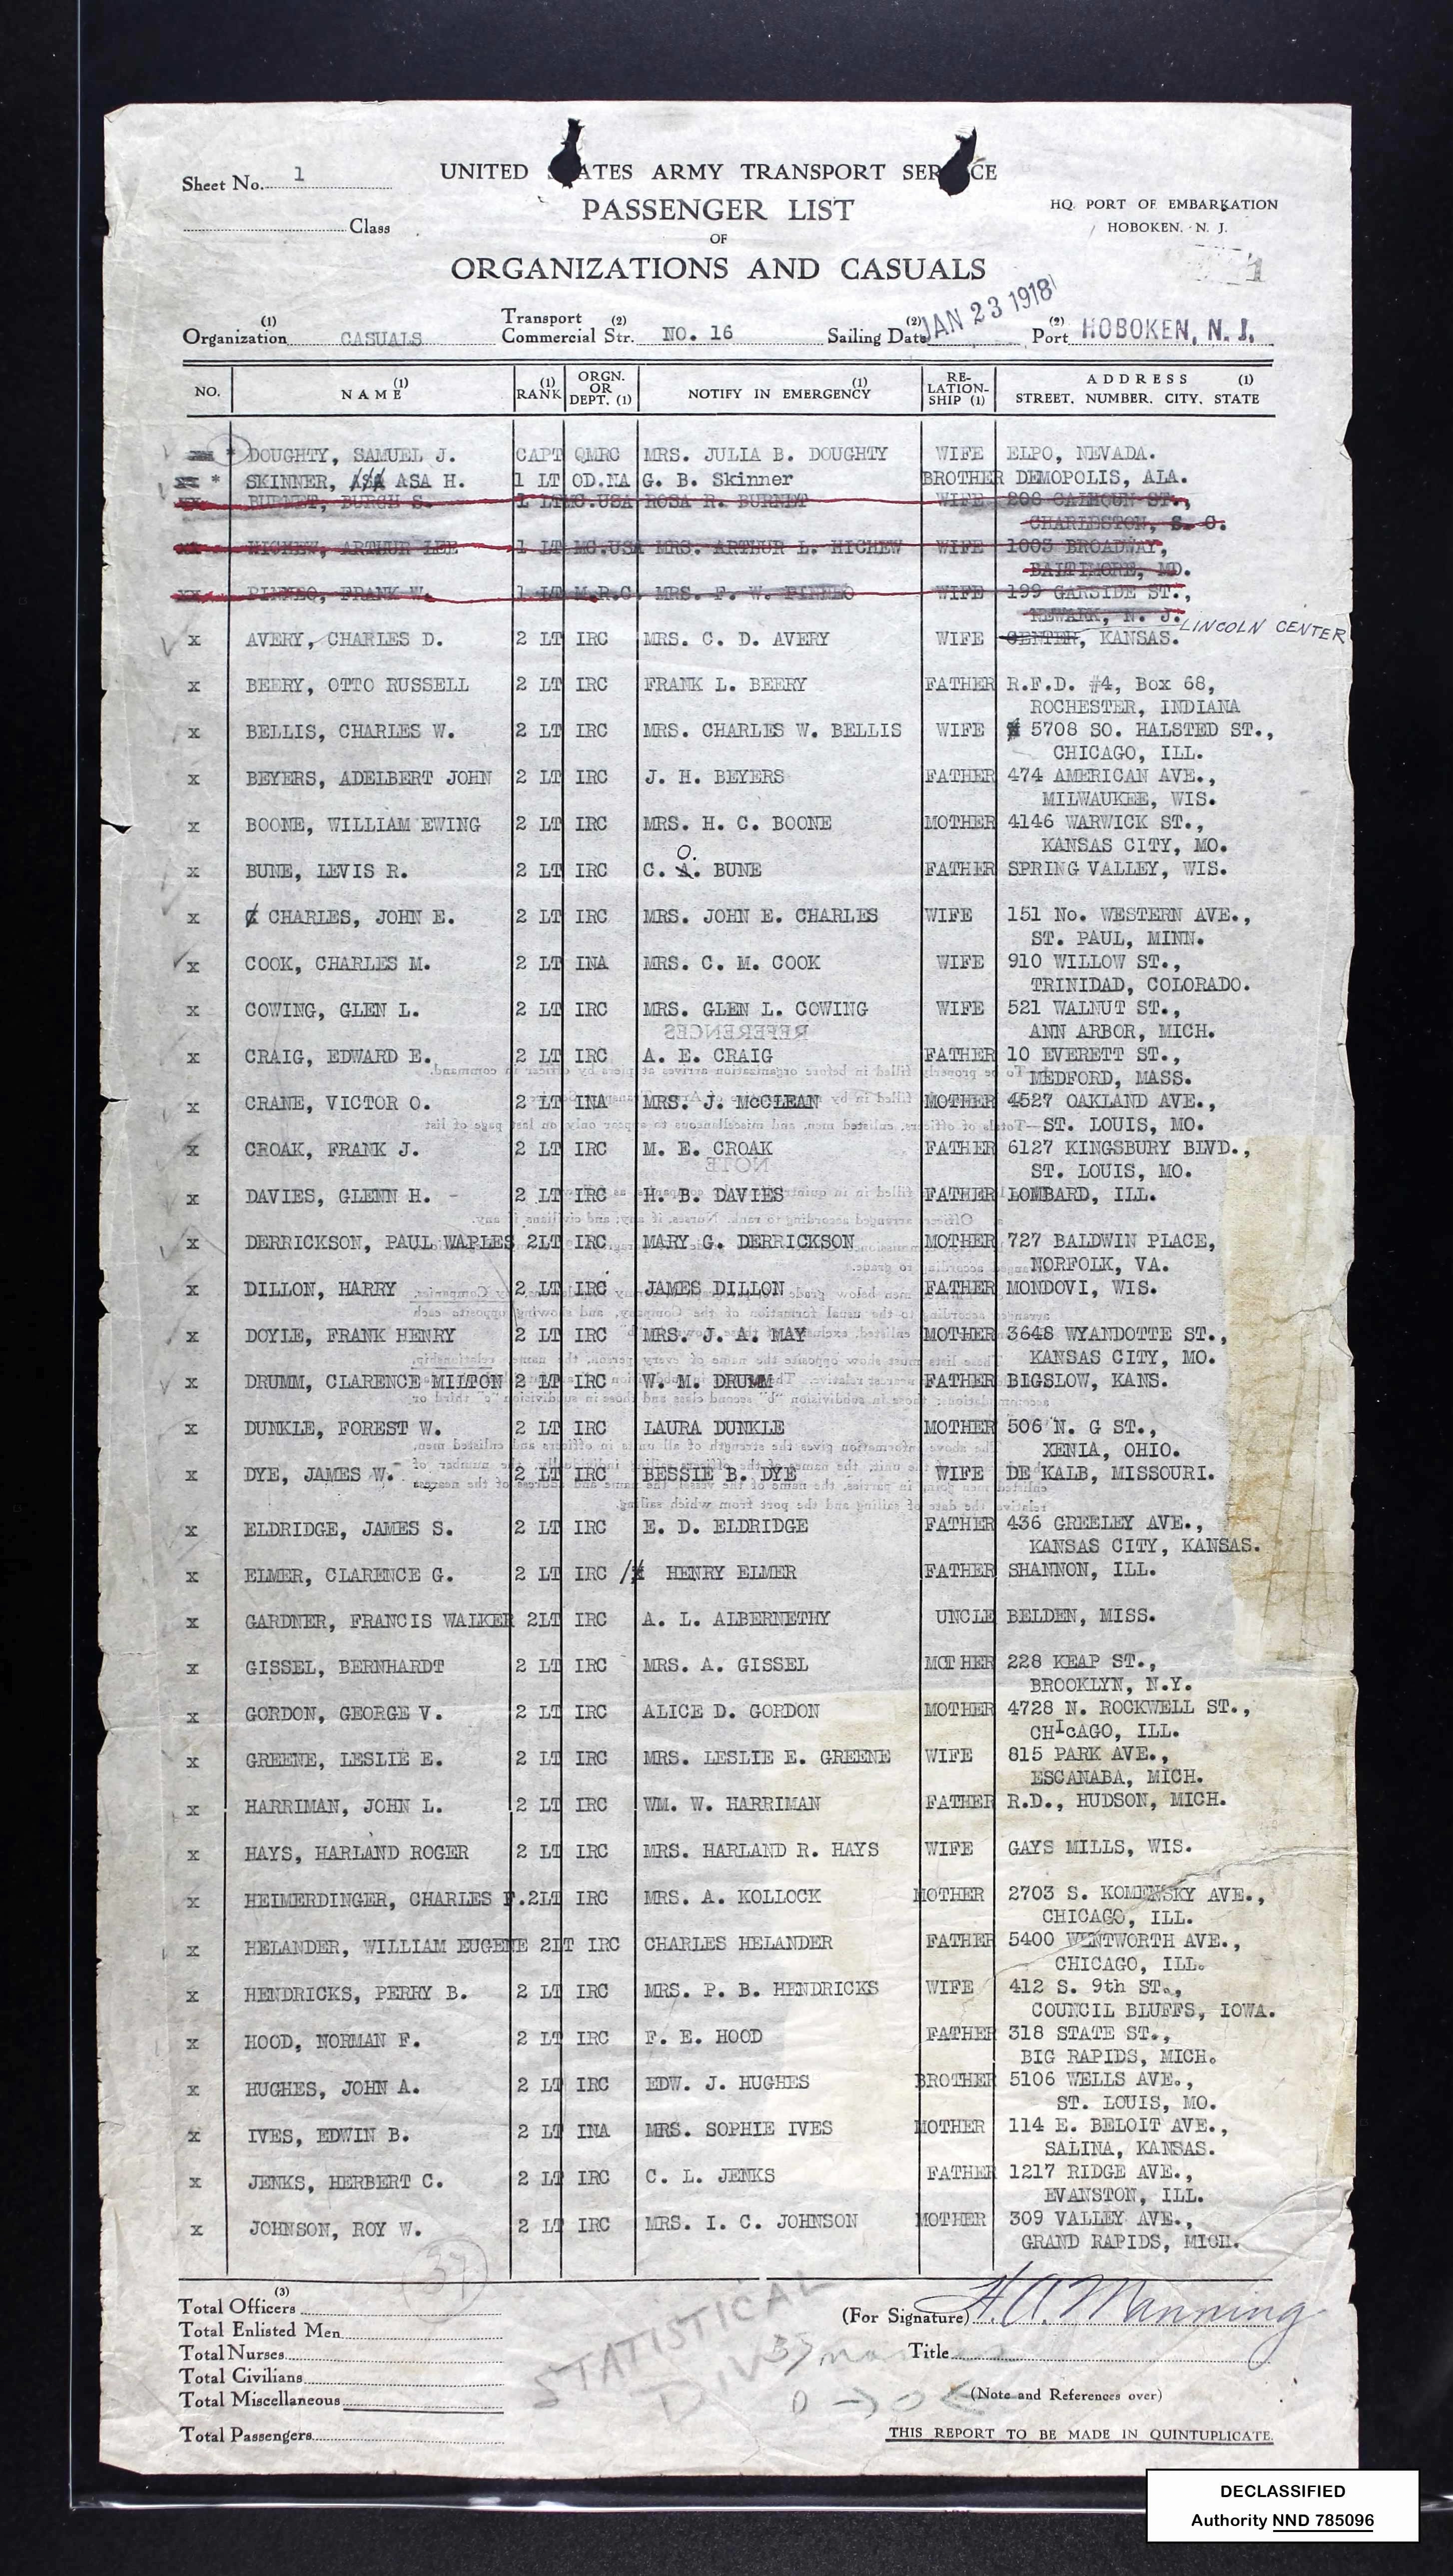 Sheet No. 1
UNITED STATES ARMY TRANSPORT SERVICE
PASSENGER LIST
OF
ORGANIZATIONS AND CASUALS
Class
HQ. PORT OF EMBARKATION
HOBOKEN, N. J.
1
(1) Organization CASUALS Transport (2) Commercial Str. NO. 16 (2) Sailing Date JAN 23 1918 (2) Port HOBOKEN, N. J.
NO. NAME (1) (1) RANK ORGN. OR DEPT. (1) NOTIFY IN EMERGENCY (1) RE-LATION-SHIP (1) ADDRESS (1) STREET, NUMBER, CITY, STATE
* DOUGHTY, SAMUEL J. CAPT QMRC MRS. JULIA B. DOUGHTY WIFE ELPO, NEVADA.
xx * SKINNER, ASA ASA H. 1 LT OD.NA G. B. Skinner BROTHER DEMOPOLIS, ALA.
xx BURNET, BURGH S. 1 LT MC.USA ROSA R. BURNET WIFE 206 CALHOUN ST.,
CHARLESTON, S. C.
xx HICHEW, ARTHUR LEE 1 LT MC.USA MRS. ARTHUR L. HICHEW WIFE 1003 BROADWAY,
BALTIMORE, MD.
xx PINNEO, FRANK W. 1 LT M.R.C. MRS. F. W. PINNEO WIFE 199 GARSIDE ST.,
NEWARK, N. J.
LINCOLN CENTER
x AVERY, CHARLES D. 2 LT IRC MRS. C. D. AVERY WIFE CENTER, KANSAS.
x BEERY, OTTO RUSSELL 2 LT IRC FRANK L. BEERY FATHER R.F.D. #4, Box 68,
ROCHESTER, INDIANA
x BELLIS, CHARLES W. 2 LT IRC MRS. CHARLES W. BELLIS WIFE 5708 SO. HALSTED ST.,
CHICAGO, ILL.
x BEYERS, ADELBERT JOHN 2 LT IRC J. H. BEYERS FATHER 474 AMERICAN AVE.,
MILWAUKEE, WIS.
x BOONE, WILLIAM EWING 2 LT IRC MRS. H. C. BOONE MOTHER 4146 WARWICK ST.,
KANSAS CITY, MO.
O.
x BUNE, LEVIS R. 2 LT IRC C. A. BUNE FATHER SPRING VALLEY, WIS.
x CHARLES, JOHN E. 2 LT IRC MRS. JOHN E. CHARLES WIFE 151 No. WESTERN AVE.,
ST. PAUL, MINN.
x COOK, CHARLES M. 2 LT INA MRS. C. M. COOK WIFE 910 WILLOW ST.,
TRINIDAD, COLORADO.
x COWING, GLEN L. 2 LT IRC MRS. GLEN L. COWING WIFE 521 WALNUT ST.,
ANN ARBOR, MICH.
x CRAIG, EDWARD E. 2 LT IRC A. E. CRAIG FATHER 10 EVERETT ST.,
MEDFORD, MASS.
x CRANE, VICTOR O. 2 LT INA MRS. J. McCLEAN MOTHER 4527 OAKLAND AVE.,
ST. LOUIS, MO.
x CROAK, FRANK J. 2 LT IRC M. E. CROAK FATHER 6127 KINGSBURY BLVD.,
ST. LOUIS, MO.
x DAVIES, GLENN H. 2 LT IRC H. B. DAVIES FATHER LOMBARD, ILL.
x DERRICKSON, PAUL WAPLES 2LT IRC MARY G. DERRICKSON MOTHER 727 BALDWIN PLACE,
NORFOLK, VA.
x DILLON, HARRY 2 LT IRC JAMES DILLON FATHER MONDOVI, WIS.
x DOYLE, FRANK HENRY 2 LT IRC MRS. J. A. MAY MOTHER 3648 WYANDOTTE ST.,
KANSAS CITY, MO.
x DRUMM, CLARENCE MILTON 2 LT IRC W. M. DRUMM FATHER BIGSLOW, KANS.
x DUNKLE, FOREST W. 2 LT IRC LAURA DUNKLE MOTHER 506 N. G ST.,
XENIA, OHIO.
x DYE, JAMES W. 2 LT IRC BESSIE B. DYE WIFE DE KALB, MISSOURI.
x ELDRIDGE, JAMES S. 2 LT IRC E. D. ELDRIDGE FATHER 436 GREELEY AVE.,
KANSAS CITY, KANSAS.
x ELMER, CLARENCE G. 2 LT IRC HENRY ELMER FATHER SHANNON, ILL.
x GARDNER, FRANCIS WALKER 2LT IRC A. L. ALBERNETHY UNCLE BELDEN, MISS.
x GISSEL, BERNHARDT 2 LT IRC MRS. A. GISSEL MOTHER 228 KEAP ST.,
BROOKLYN, N.Y.
x GORDON, GEORGE V. 2 LT IRC ALICE D. GORDON MOTHER 4728 N. ROCKWELL ST.,
CHICAGO, ILL.
x GREENE, LESLIE E. 2 LT IRC MRS. LESLIE E. GREENE WIFE 815 PARK AVE.,
ESCANABA, MICH.
x HARRIMAN, JOHN L. 2 LT IRC WM. W. HARRIMAN FATHER R.D., HUDSON, MICH.
x HAYS, HARLAND ROGER 2 LT IRC MRS. HARLAND R. HAYS WIFE GAYS MILLS, WIS.
x HEIMERDINGER, CHARLES F. 2LT IRC MRS. A. KOLLOCK MOTHER 2703 S. KOMENSKY AVE.,
CHICAGO, ILL.
x HELANDER, WILLIAM EUGENE 2LT IRC CHARLES HELANDER FATHER 5400 WENTWORTH AVE.,
CHICAGO, ILL.
x HENDRICKS, PERRY B. 2 LT IRC MRS. P. B. HENDRICKS WIFE 412 S. 9th ST.,
COUNCIL BLUFFS, IOWA.
x HOOD, NORMAN F. 2 LT IRC F. E. HOOD FATHER 318 STATE ST.,
BIG RAPIDS, MICH.
x HUGHES, JOHN A. 2 LT IRC EDW. J. HUGHES BROTHER 5106 WELLS AVE.,
ST. LOUIS, MO.
x IVES, EDWIN B. 2 LT INA MRS. SOPHIE IVES MOTHER 114 E. BELOIT AVE.,
SALINA, KANSAS.
x JENKS, HERBERT C. 2 LT IRC C. L. JENKS FATHER 1217 RIDGE AVE.,
EVANSTON, ILL.
x JOHNSON, ROY W. 2 LT IRC MRS. I. C. JOHNSON MOTHER 309 VALLEY AVE.,
GRAND RAPIDS, MICH.
37
(3)
Total Officers
Total Enlisted Men
Total Nurses
Total Civilians
Total Miscellaneous
Total Passengers
STATISTICAL
DIV
(For Signature) H. A. Manning
Title
(Note and References over)
THIS REPORT TO BE MADE IN QUINTUPLICATE.
DECLASSIFIED
Authority NND 785096